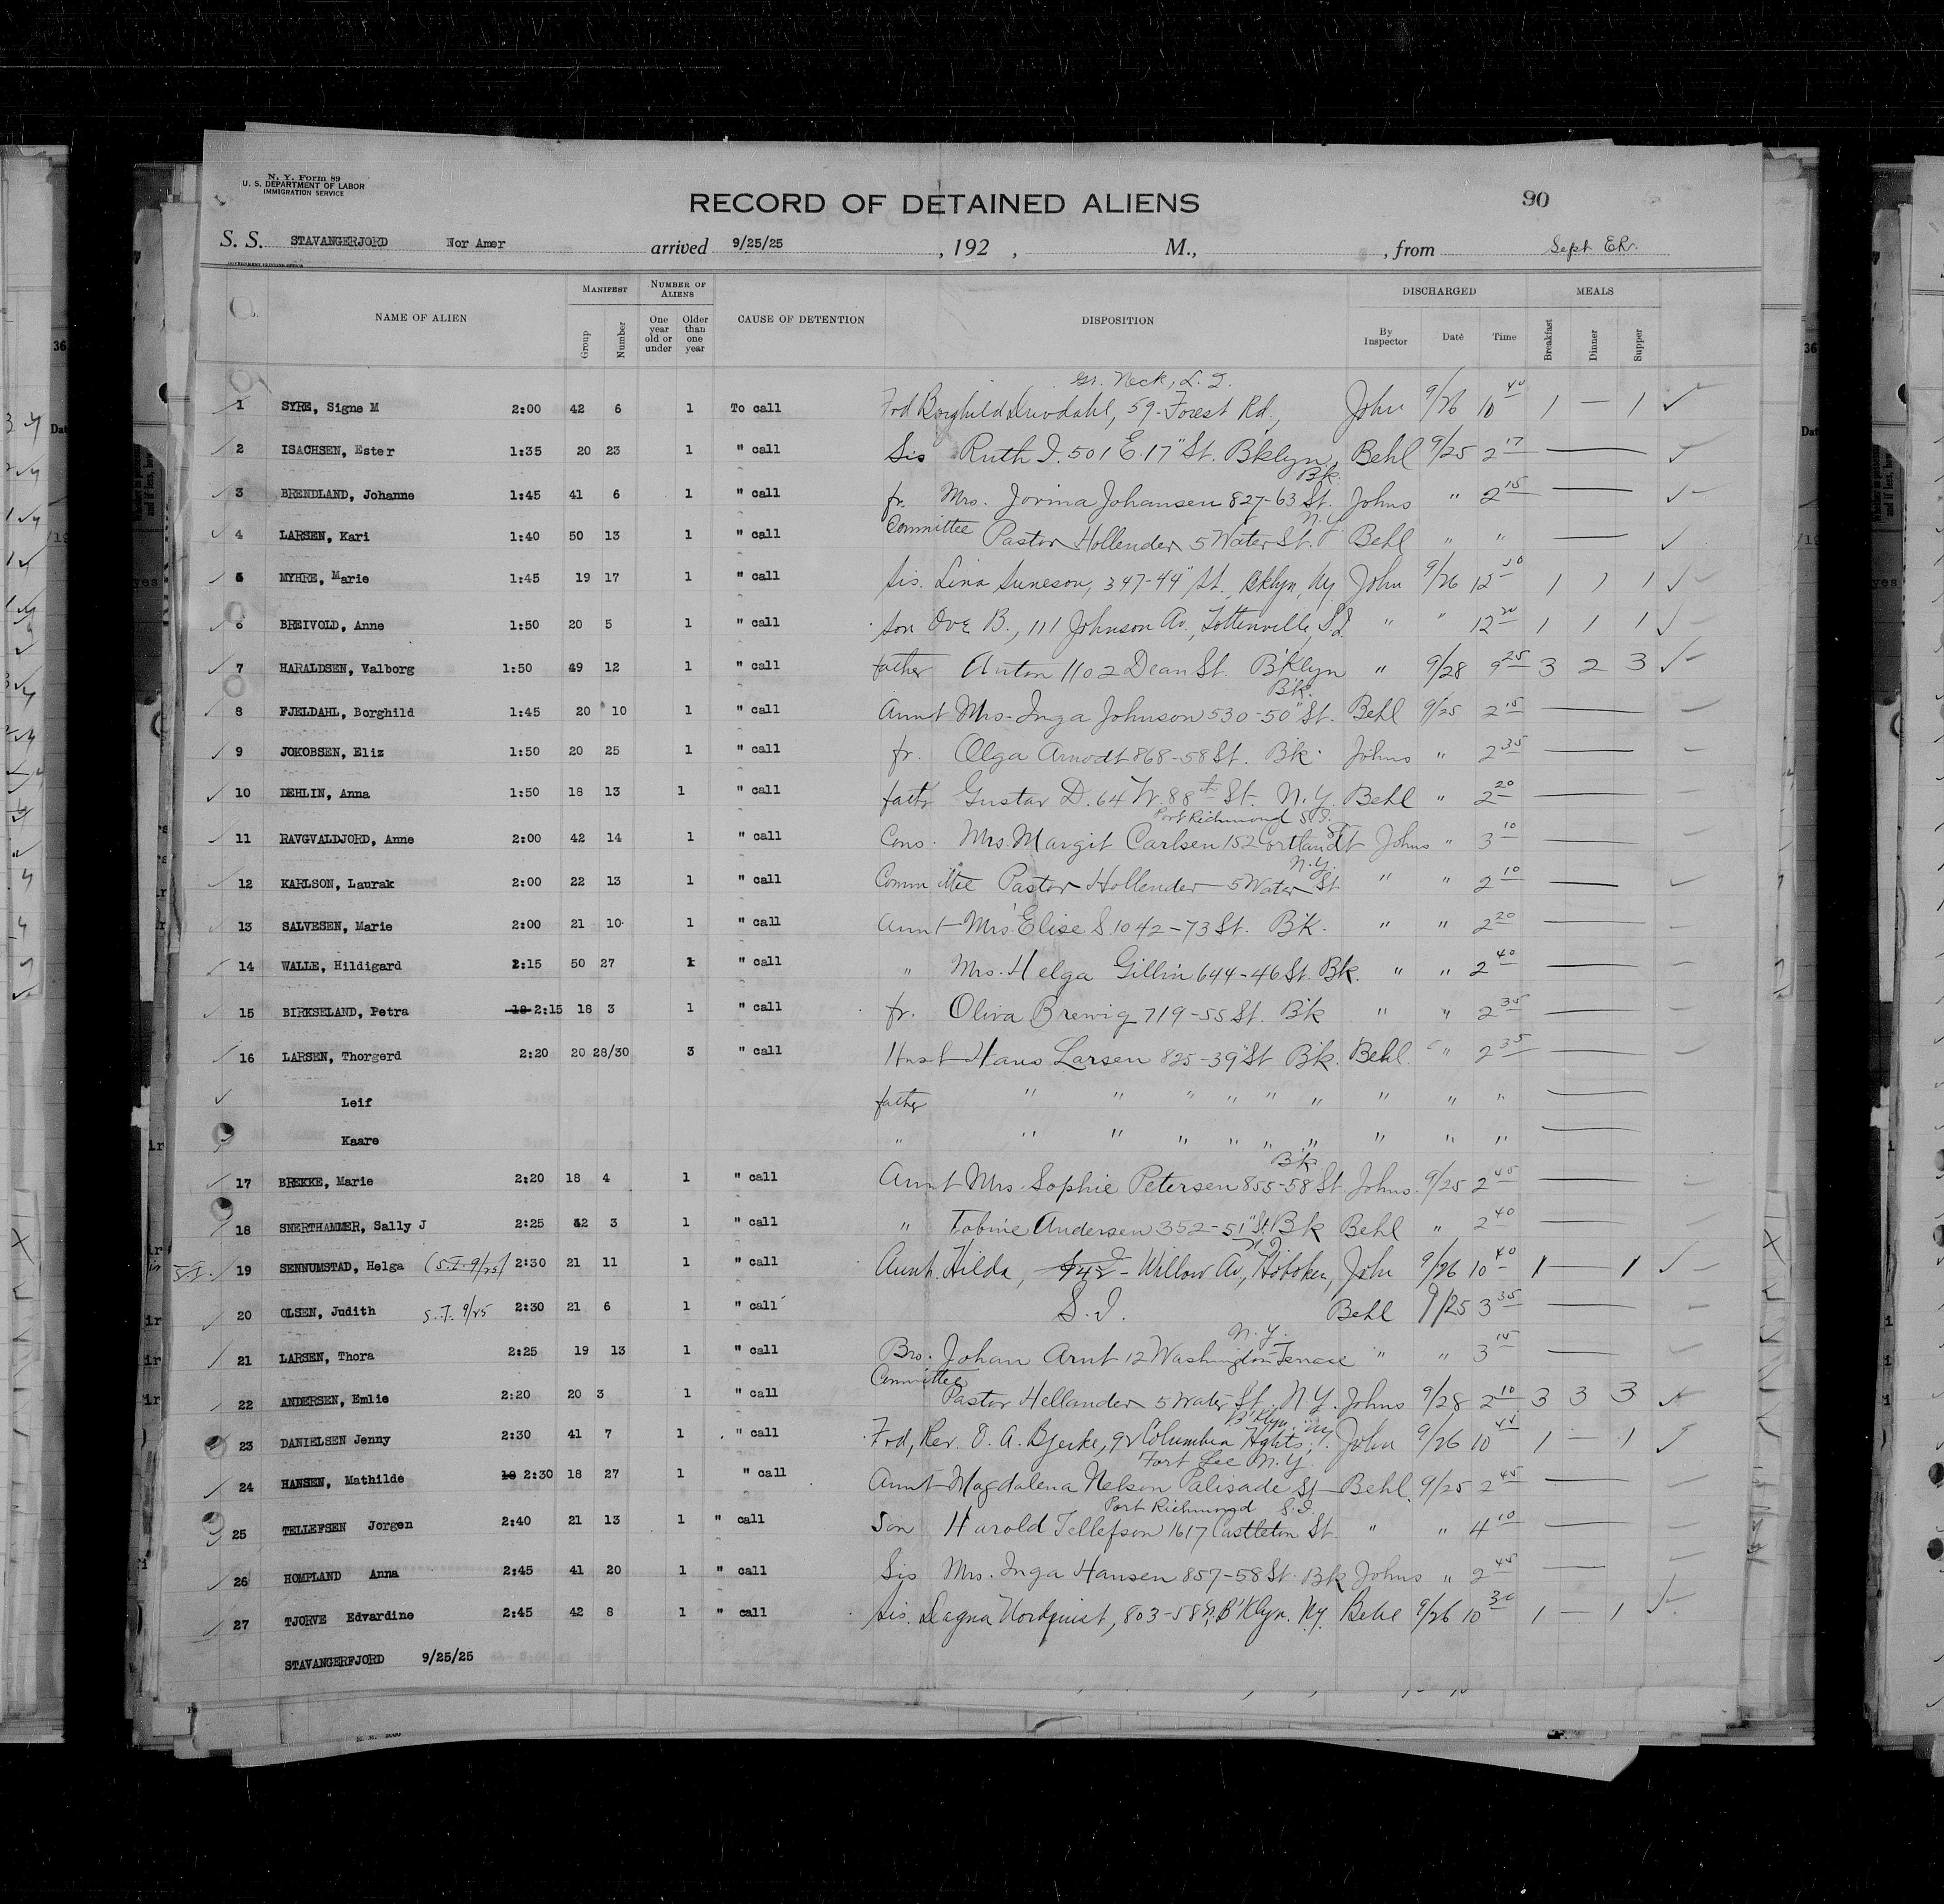 N. Y. Form 89
U. S. DEPARTMENT OF LABOR
IMMIGRATION SERVICE
RECORD OF DETAINED ALIENS
90
S. S. STAVANGERJORD Nor Amer arrived 9/25/25 , 192 , M., , from Sept ER.
GOVERNMENT PRINTING OFFICE
NAME OF ALIEN MANIFEST Group Number NUMBER OF ALIENS One year old or under Older than one year CAUSE OF DETENTION DISPOSITION DISCHARGED By Inspector Date Time MEALS Breakfast Dinner Supper
Gr. Neck, L. I.
1 SYRE, Signe M 2:00 42 6 1 To call Frd Borghild 59-Forest Rd., John 9/26 10 40 1 — 1
2 ISACHSEN, Ester 1:35 20 23 1 " call Sis Ruth I. 501 E. 17" St. Bklyn Behl 9/25 2 17
Bk.
3 BRENDLAND, Johanne 1:45 41 6 1 " call fr. Mrs. Jorina Johansen 827-63 St. Johns " 2 15
N.Y.
4 LARSEN, Kari 1:40 50 13 1 " call Committee Pastor Hollender 5 Water St. Behl " "
5 MYHRE, Marie 1:45 19 17 1 " call Sis. Lina Suneson, 347-44" St., Bklyn, Ny John 9/26 12 30 1 1 1
6 BREIVOLD, Anne 1:50 20 5 1 " call son Ove B., 111 Johnson Av., Tottenville, S.I. " " 12 20 1 1 1
7 HARALDSEN, Valborg 1:50 49 12 1 " call father Anton 1102 Dean St. B'klyn " 9/28 9 25 3 2 3
Bk.
8 FJELDAHL, Borghild 1:45 20 10 1 " call Aunt Mrs. Inga Johnson 530-50" St. Behl 9/25 2 15
9 JOKOBSEN, Eliz 1:50 20 25 1 " call fr. Olga Arnodt 868-58 St. Bk. Johns " 2 35
10 DEHLIN, Anna 1:50 18 13 1 " call fath Gustav D. 64 W. 88th St. N.Y. Behl " 2 20
Port Richmond S.I.
11 RAVGVALDJORD, Anne 2:00 42 14 1 " call Cons. Mrs. Margit Carlsen 152 Cortlandt St Johns " 3 10
N.Y.
12 KARLSON, Laurak 2:00 22 13 1 " call Committee Pastor Hollender 5 Water St " " 2 10
13 SALVESEN, Marie 2:00 21 10 1 " call Aunt Mrs. Elise S. 1042-73 St. Bk. " " 2 20
14 WALLE, Hildigard 2:15 50 27 1 " call " Mrs. Helga Gillin 644-46 St. Bk. " " 2 40
15 BIRKSELAND, Petra 18 2:15 18 3 1 " call fr. Oliva Brewig 719-55 St. Bk " " 2 35
16 LARSEN, Thorgerd 2:20 20 28/30 3 " call Husb Hans Larsen 825-39" St Bk. Behl " 2 35
Leif father " " " " " " " " "
Kaare " " " " " " " " " "
Bk
17 BREKKE, Marie 2:20 18 4 1 " call Aunt Mrs. Sophie Petersen 855-58 St. Johns. 9/25 2 45
18 SNERTHAMMER, Sally J 2:25 42 3 1 " call " Tobine Andersen 352-51" St. Bk Behl " 2 40
N.J.
S.I. 19 SENNUMSTAD, Helga (S.I. 9/25) 2:30 21 11 1 " call Aunt. Hilda, 942 - Willow Av., Hoboken, John 9/26 10 40 1 — 1
20 OLSEN, Judith S.I. 9/25 2:30 21 6 1 " call S.I. Behl 9/25 3 35
N.Y.
21 LARSEN, Thora 2:25 19 13 1 " call Bro. Johan Arnt 12 Washington Terrace " " 3 15
Committee
22 ANDERSEN, Emlie 2:20 20 3 1 " call Pastor Hellander 5 Water St. N.Y. Johns 9/28 2 10 3 3 3
B'klyn, Ny
23 DANIELSEN Jenny 2:30 41 7 1 " call Frd, Rev. O. A. Bjerke, 92 Columbia Hghts, John 9/26 10 1 — 1
Fort Lee N.Y.
24 HANSEN, Mathilde 18 2:30 18 27 1 " call Aunt Magdalena Nelson Palisade St Behl. 9/25 2 45
Port Richmond S.I.
25 TELLEFSEN Jorgen 2:40 21 13 1 " call Son Harold Tellefson 1617 Castleton St. " " 4 10
26 HOMPLAND Anna 2:45 41 20 1 " call Sis Mrs. Inga Hansen 857-58 St. Bk Johns " 2 45
27 TJORVE Edvardine 2:45 42 8 1 " call Sis. Dagna Nordquist, 803-58 St, B'klyn. Ny. Behl 9/26 10 30 1 — 1
STAVANGERFJORD 9/25/25